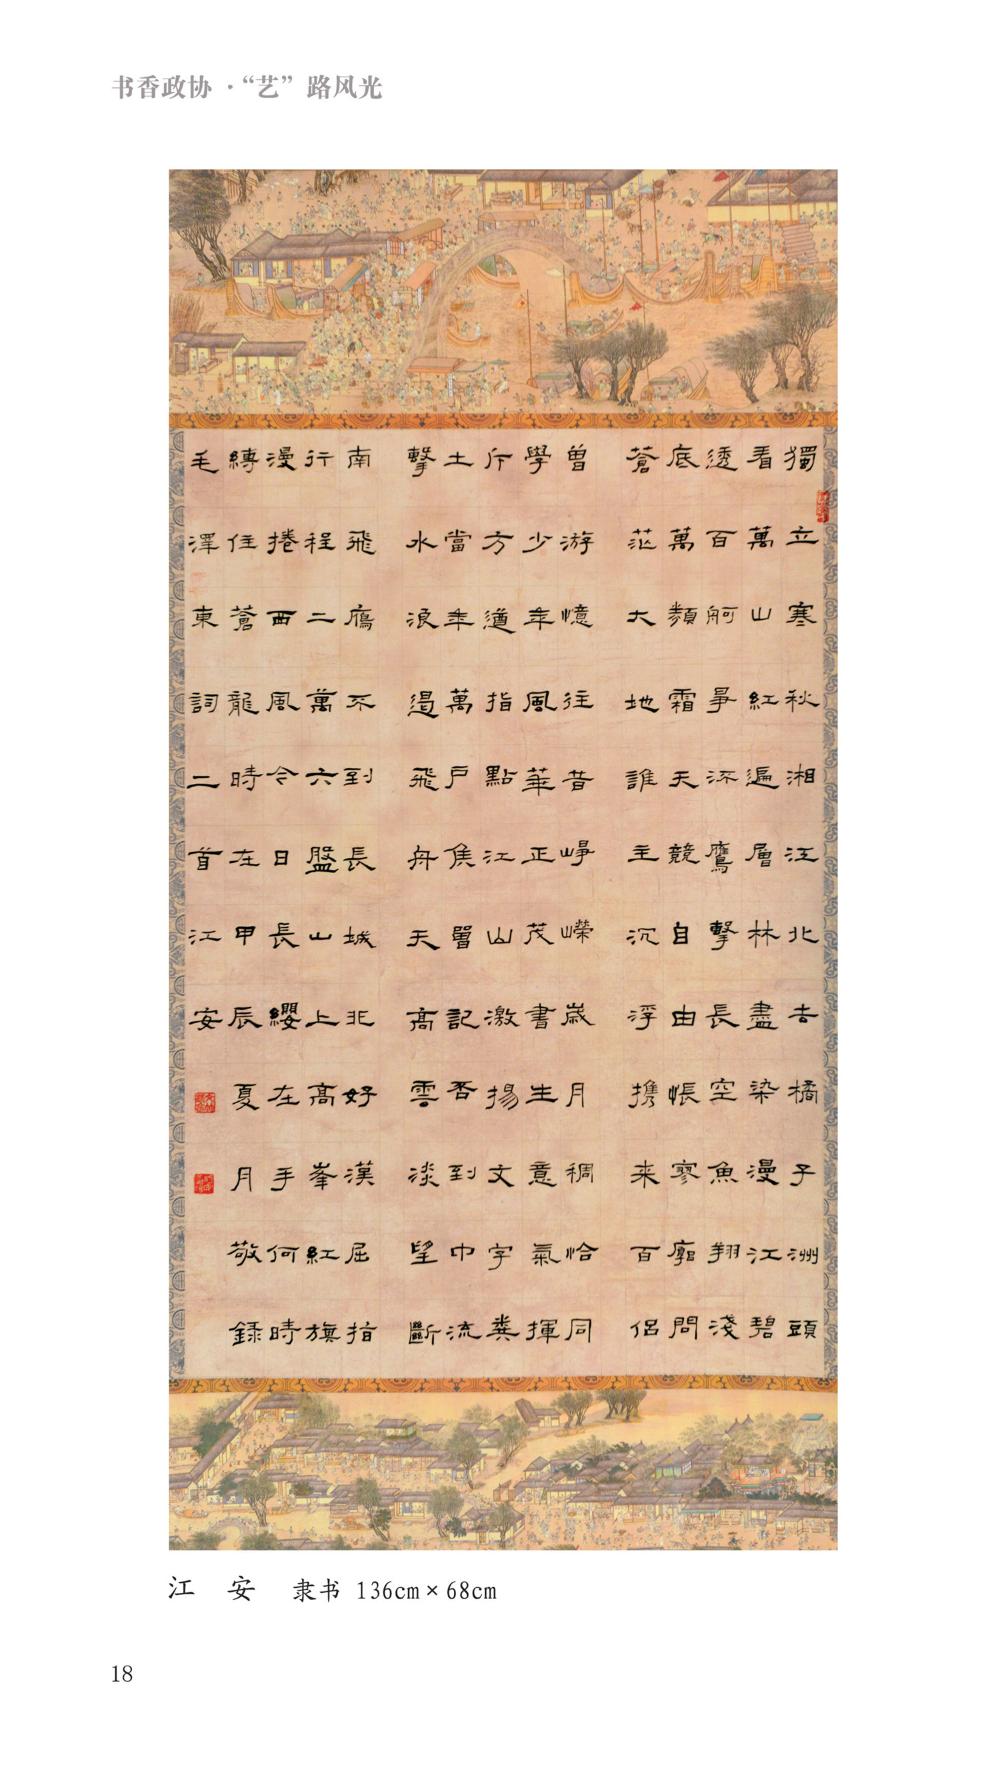 书香政协·“艺”路风光
獨立寒秋湘江北去橘子洲頭
看萬山紅遍層林盡染漫江碧
透百舸爭流鷹擊長空魚翔淺
底萬類霜天競自由悵寥廓問
蒼茫大地誰主沉浮携来百侶
曾游憶往昔崢嶸歲月稠恰同
學少年風華正茂書生意氣揮
斥方遒指點江山激揚文字糞
土當年萬戶侯曾記否到中流
擊水浪遏飛舟天高雲淡望斷
南飛鴈不到長城非好漢屈指
行程二萬六盤山上高峯紅旗
漫捲西風今日長纓在手何時
縛住蒼龍時在甲辰夏月敬錄
毛澤東詞二首江安
江 安 隶书 136cm×68cm
18